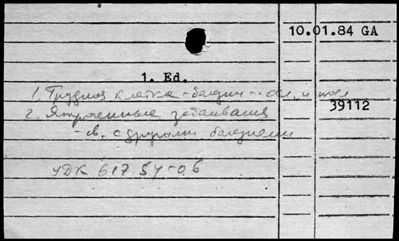 10.01.84 GA
1. Ed.
1. Грудная клетка - болезни
39112
2. Ятрогенные заболевания
- св. с другими болезнями
УДК 617.54-06